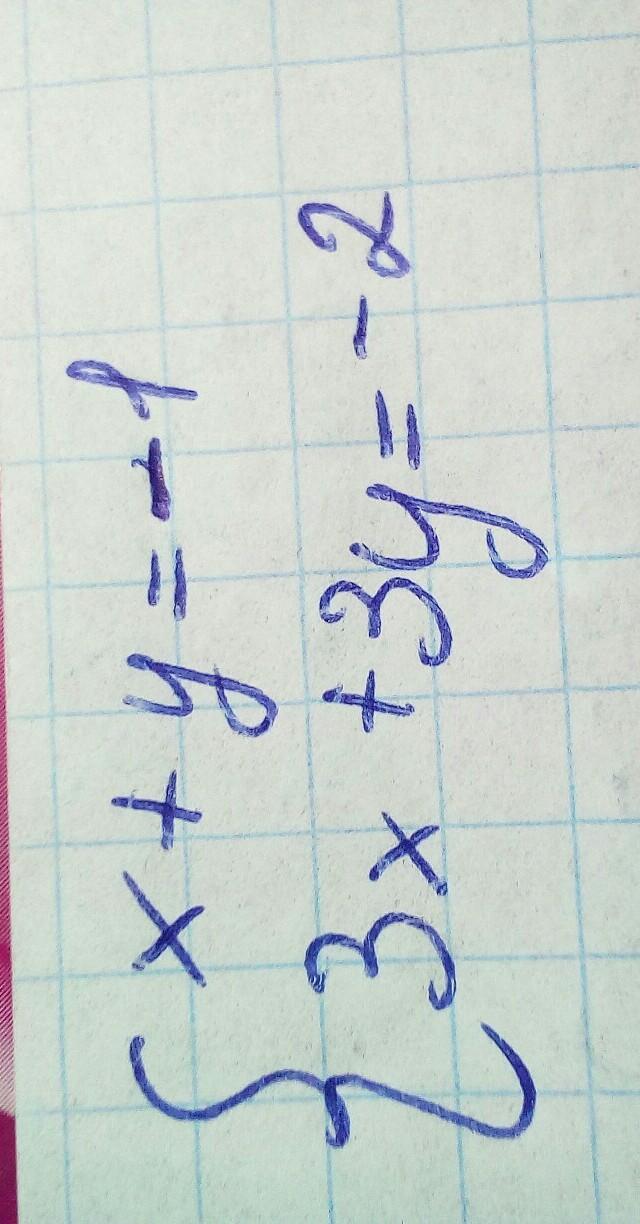 { x + y = -1
3x + 3y = -2